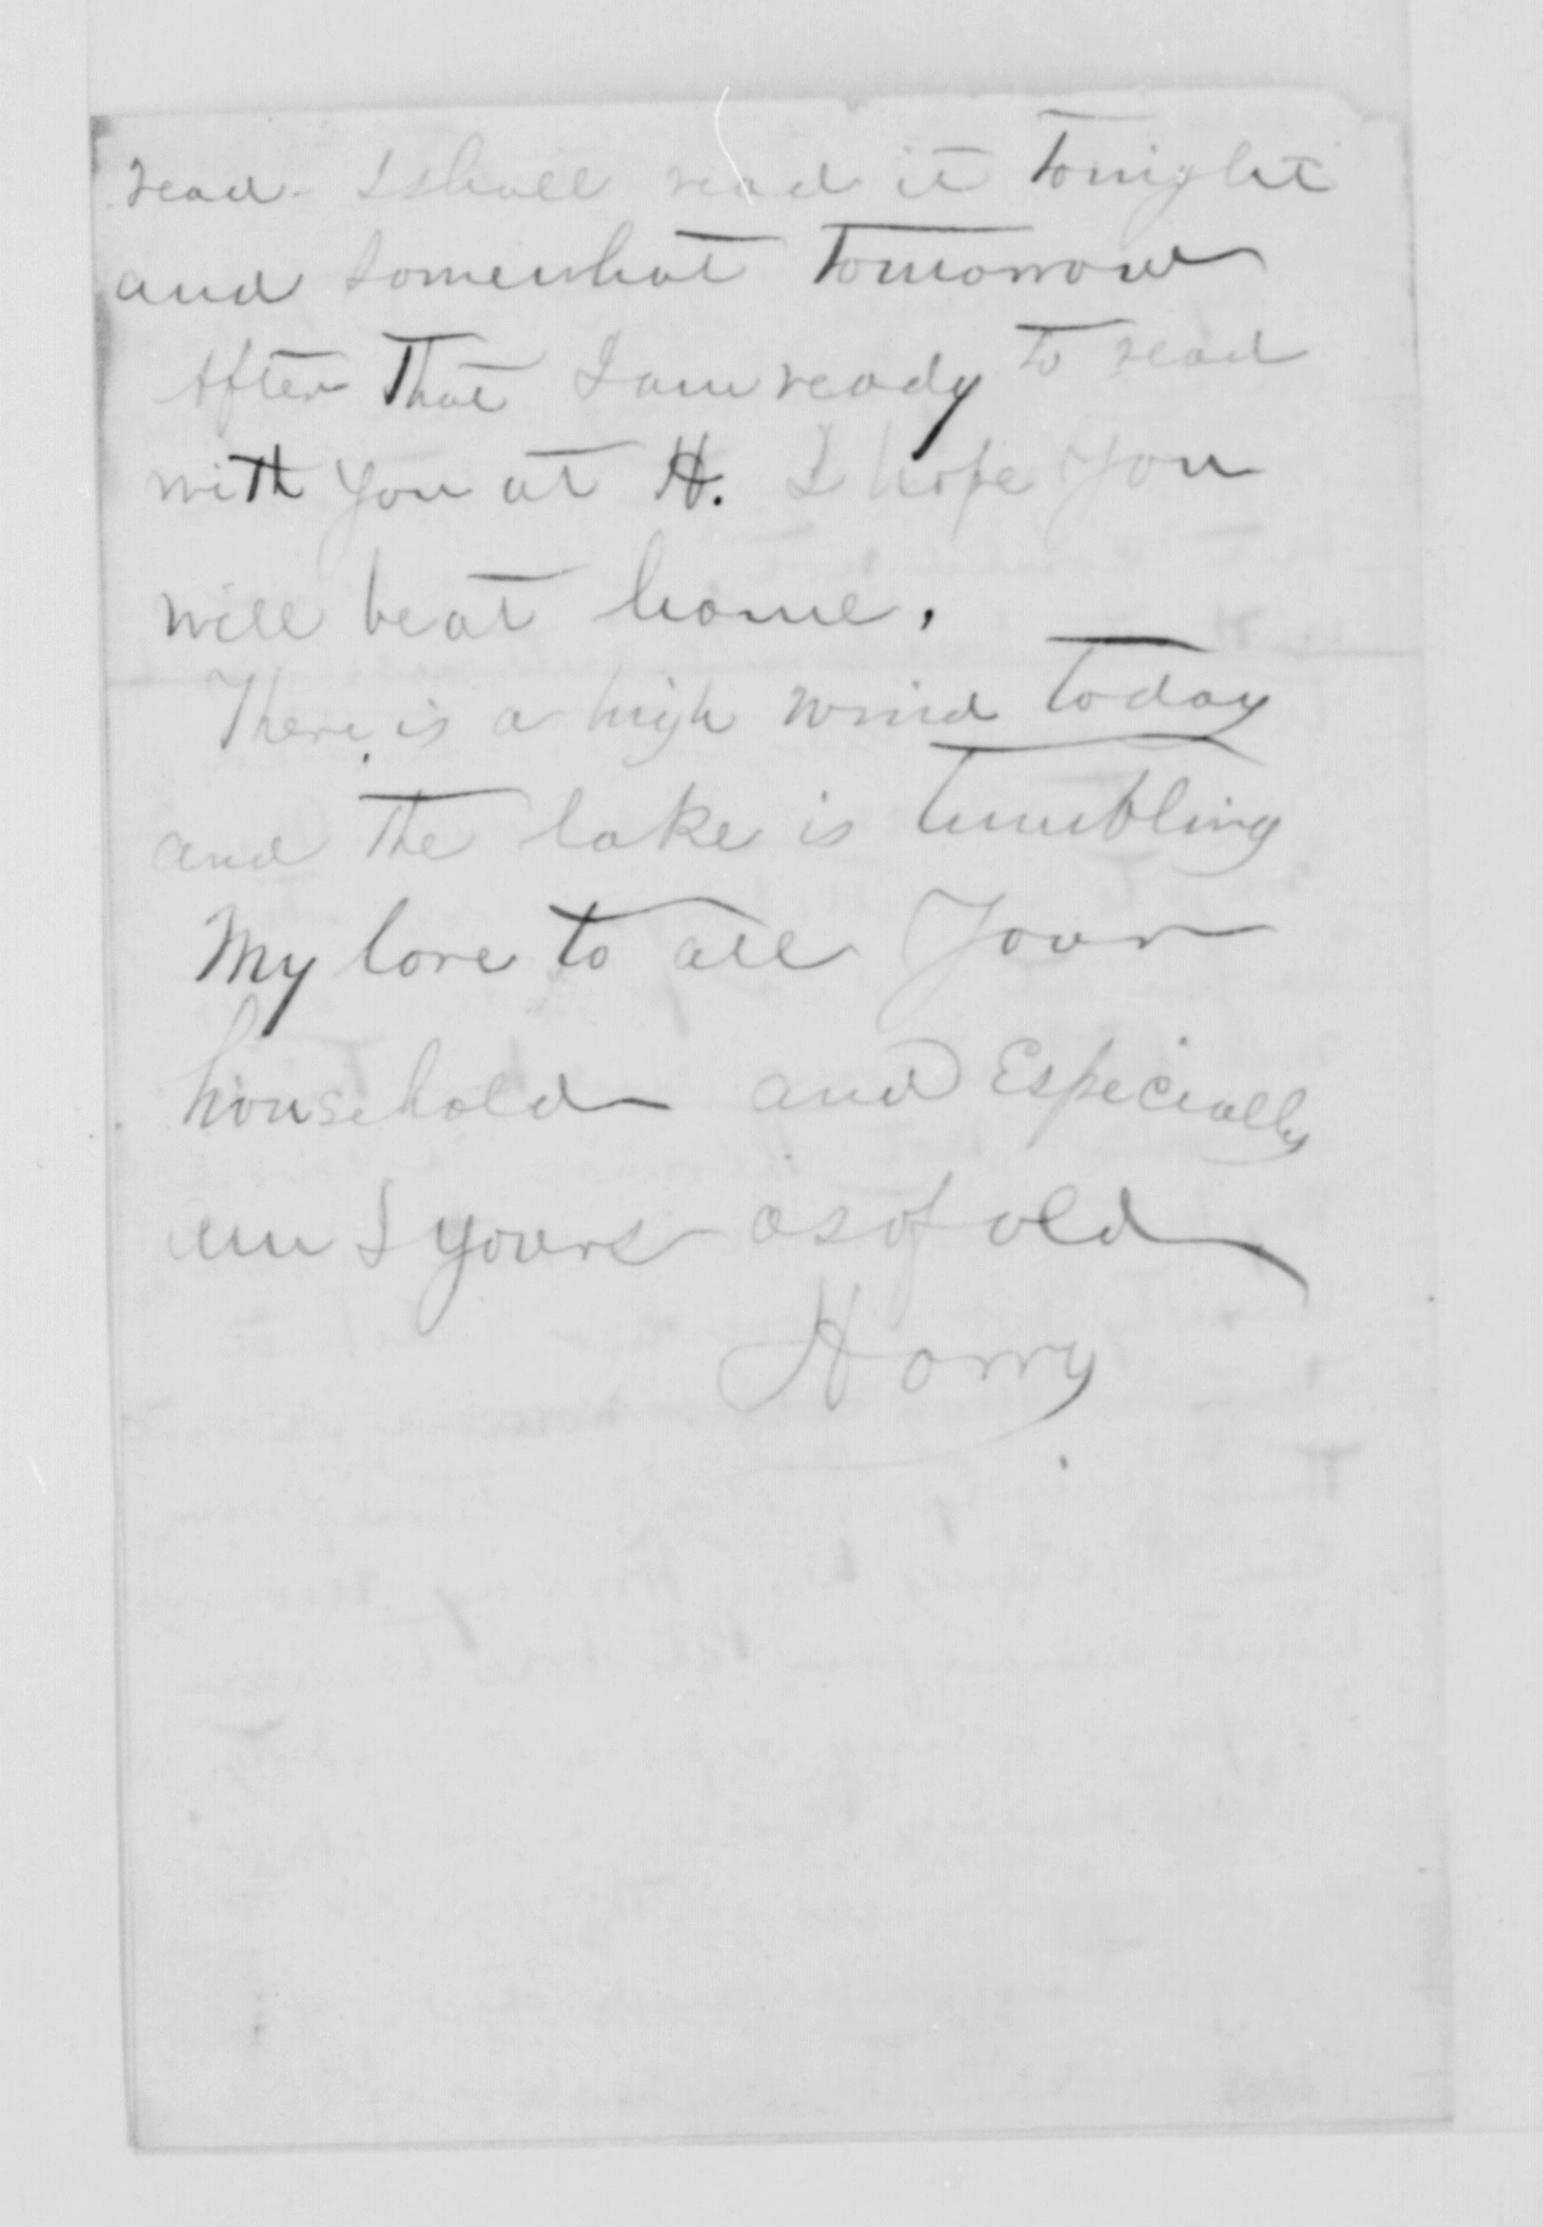 read - I shall read it tonight
and somewhat tomorrow
After that I am ready to read
with you at H. I hope you
will be at home.
There is a high wind today
and the lake is tumbling
My love to all your
household and Especially
am I yours as of old
Harry